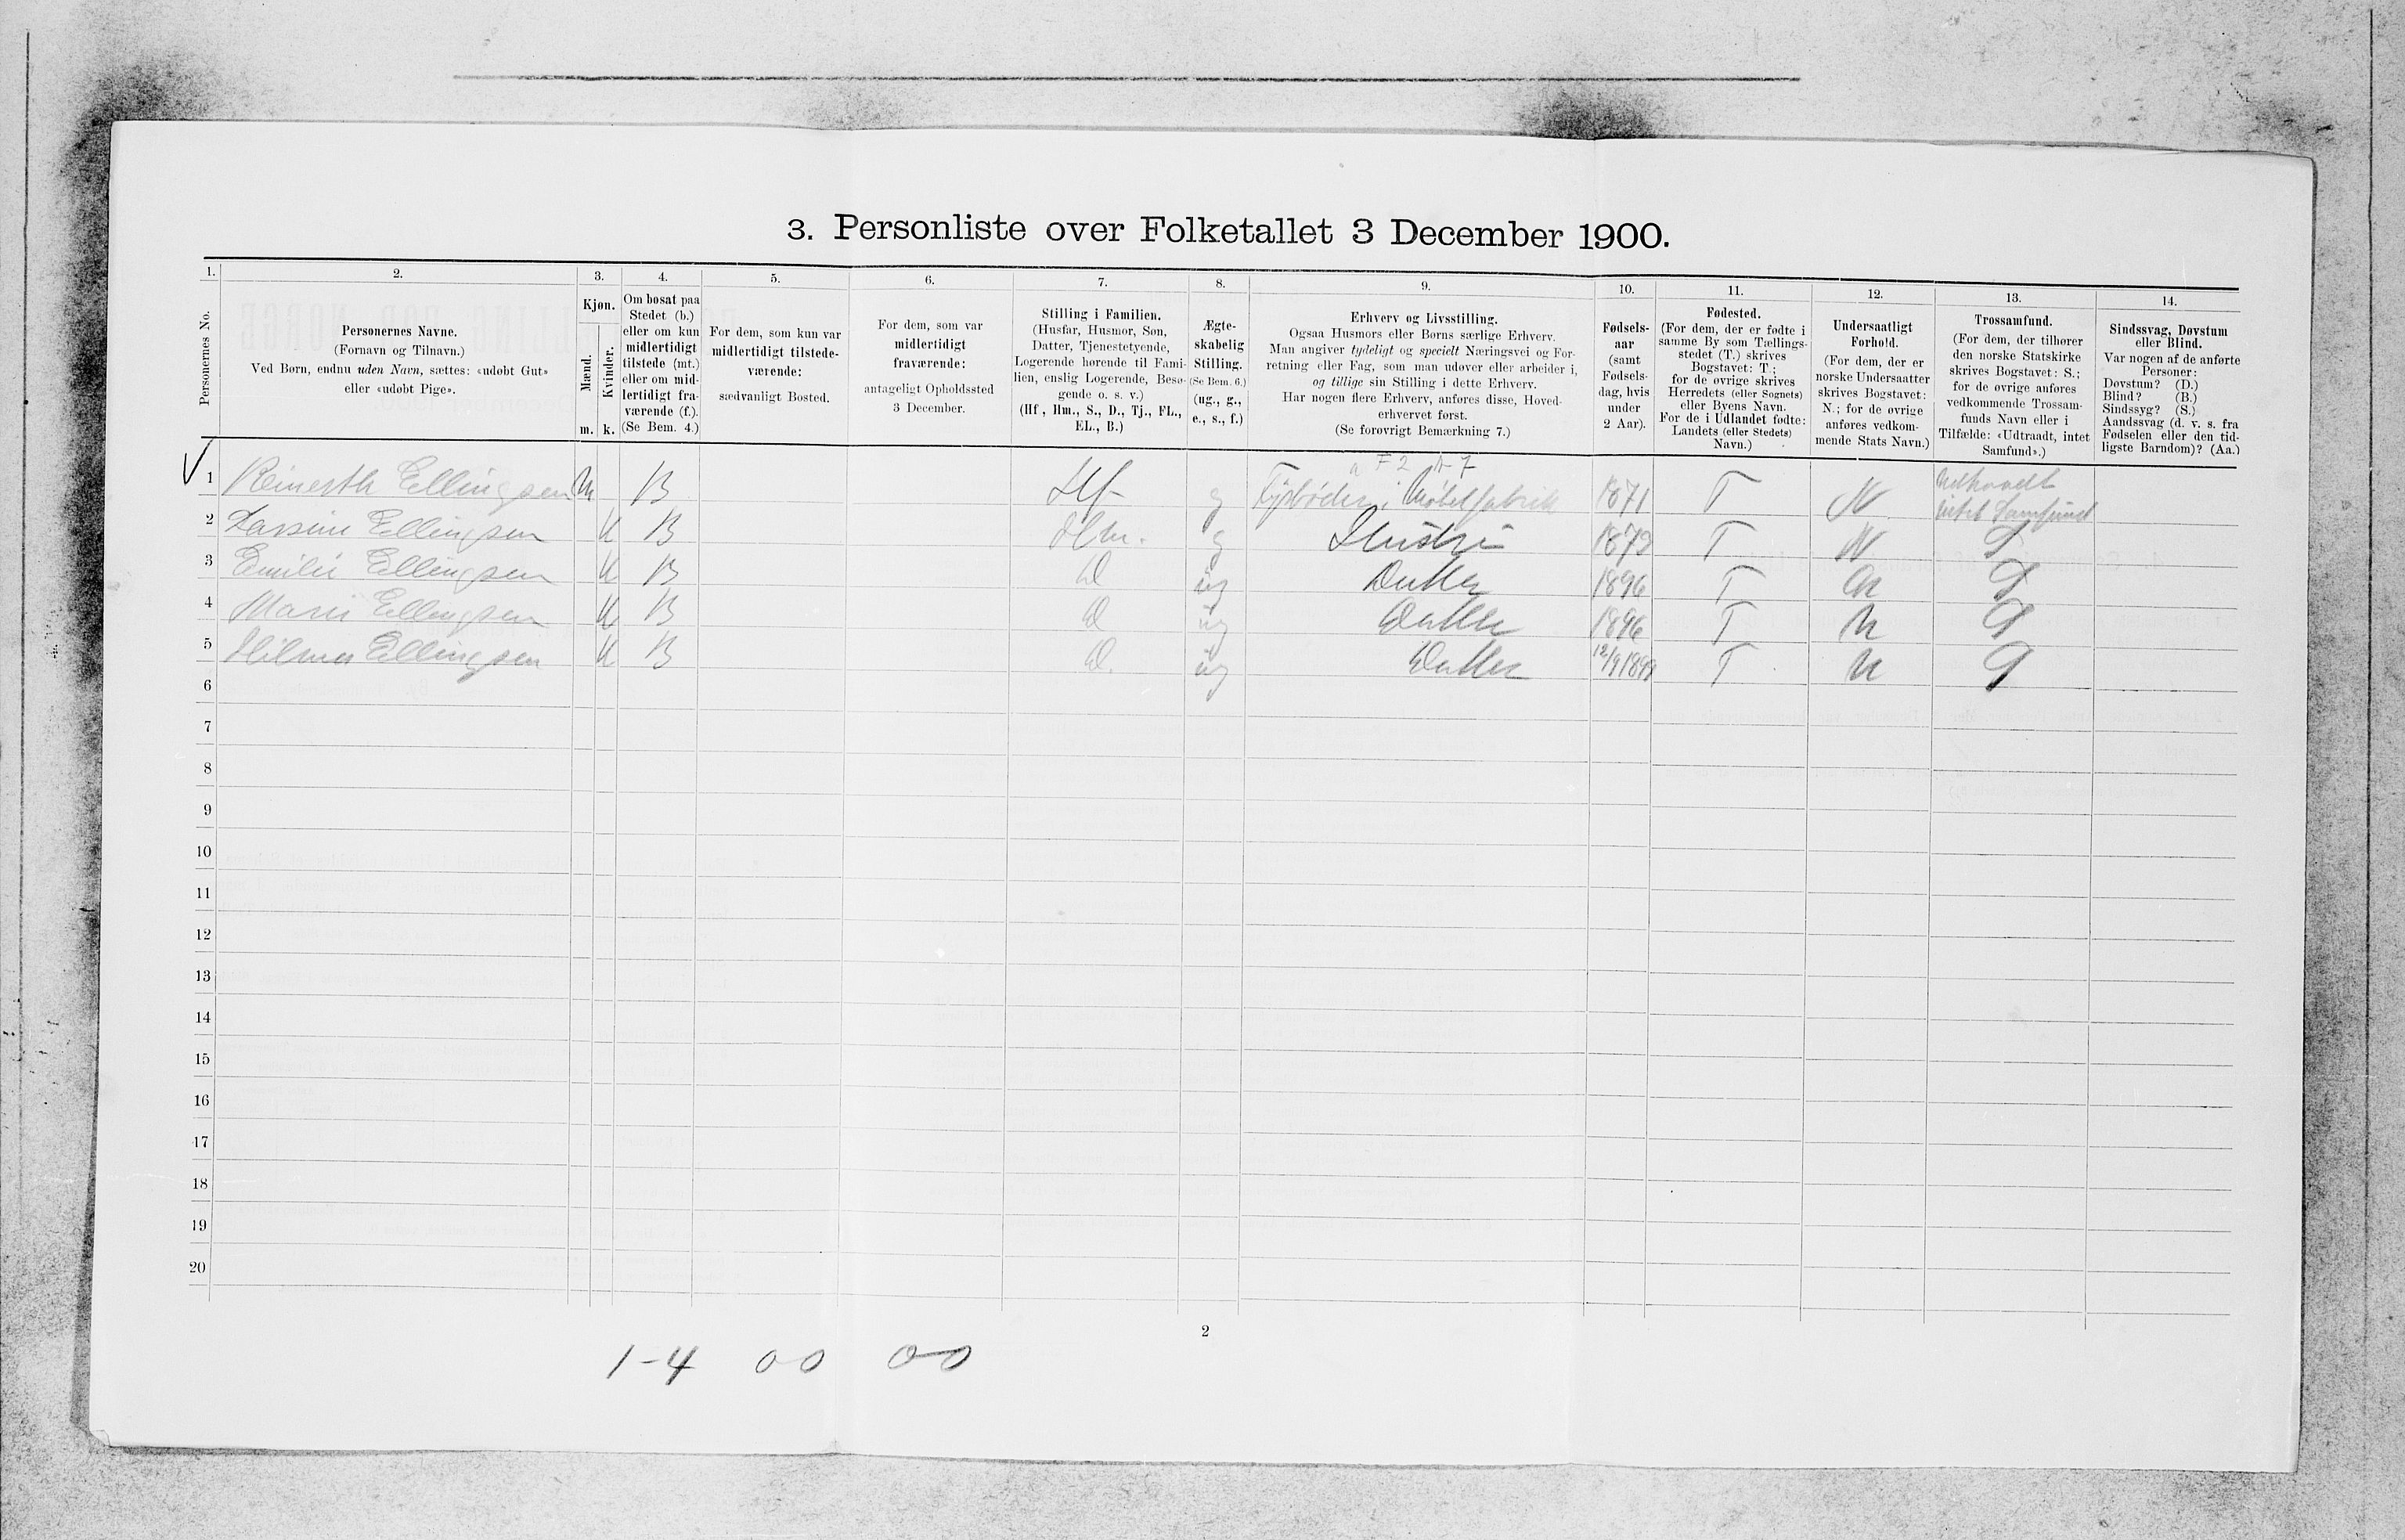 3. Personliste over Folketallet 3 December 1900.
1. 2. 3. 4. 5. 6. 7. 8. 9. 10. 11. 12. 13. 14.
Personernes No.
Personernes Navne.
(Fornavn og Tilnavn.)
Ved Børn, endnu uden Navn, sættes: «udøbt Gut»
eller «udøbt Pige».
Kjøn.
Mænd.
Kvinder.
m. k.
Om bosat paa
Stedet (b.)
eller om kun
midlertidigt
tilstede (mt.)
eller om mid-
lertidigt fra-
værende (f.).
(Se Bem. 4.)
For dem, som kun var
midlertidigt tilstede-
værende:
sædvanligt Bosted.
For dem, som var
midlertidigt
fraværende:
antageligt Opholdssted
3 December.
Stilling i Familien.
(Husfar, Husmor, Søn,
Datter, Tjenestetyende,
Logerende hørende til Fami-
lien, enslig Logerende, Besø-
gende o. s. v.)
(Hf., Hm., S., D., Tj., FL.,
EL., B.)
Ægte-
skabelig
Stilling.
(Se Bem. 6.)
(ug., g.,
e., s., f.)
Erhverv og Livsstilling.
Ogsaa Husmors eller Børns særlige Erhverv.
Man angiver tydeligt og specielt Næringsvei og For-
retning eller Fag, som man udøver eller arbeider i,
og tillige sin Stilling i dette Erhverv.
Har nogen flere Erhverv, anføres disse, Hoved-
erhvervet først.
(Se forøvrigt Bemærkning 7.)
Fødsels-
aar
(samt
Fødsels-
dag, hvis
under
2 Aar).
Fødested.
(For dem, der er fødte i
samme By som Tællings-
stedet (T.) skrives
Bogstavet: T.;
for de øvrige skrives
Herredets (eller Sognets)
eller Byens Navn.
For de i Udlandet fødte:
Landets (eller Stedets)
Navn.)
Undersaatligt
Forhold.
(For dem, der er
norske Undersaatter
skrives Bogstavet:
N.; for de øvrige
anføres vedkom-
mende Stats Navn.)
Trossamfund.
(For dem, der tilhører
den norske Statskirke
skrives Bogstavet: S.;
for de øvrige anføres
vedkommende Trossam-
funds Navn eller i
Tilfælde: «Udtraadt, intet
Samfund».)
Sindssvag, Døvstum
eller Blind.
Var nogen af de anførte
Personer:
Døvstum? (D.)
Blind? (B.)
Sindssyg? (S.)
Aandssvag (d. v. s. fra
Fødselen eller den tid-
ligste Barndom)? (Aa.)
1 Reinerth Ellingsen M B Hf g i Møbelfabrik 1871 T N Udtraadt intet Samfund
2 Lassine Ellingsen K B Hm. g Hustru 1879 T N S
3 Emilie Ellingsen K B D ug Datter 1896 T N S
4 Marie Ellingsen K B D ug Datter 1896 T N S
5 Hilma Ellingsen K B D. ug Datter 12/9 1899 T N S
6
7
8
9
10
11
12
13
14
15
16
17
18
19
20
2
1-4 00 00